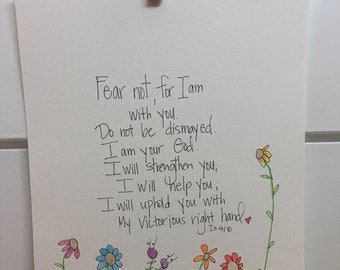 Fear not, for I am
with you.
Do not be dismayed.
I am your God.
I will strengthen you;
I will help you;
I will uphold you with
My victorious right hand.
Is 41:10